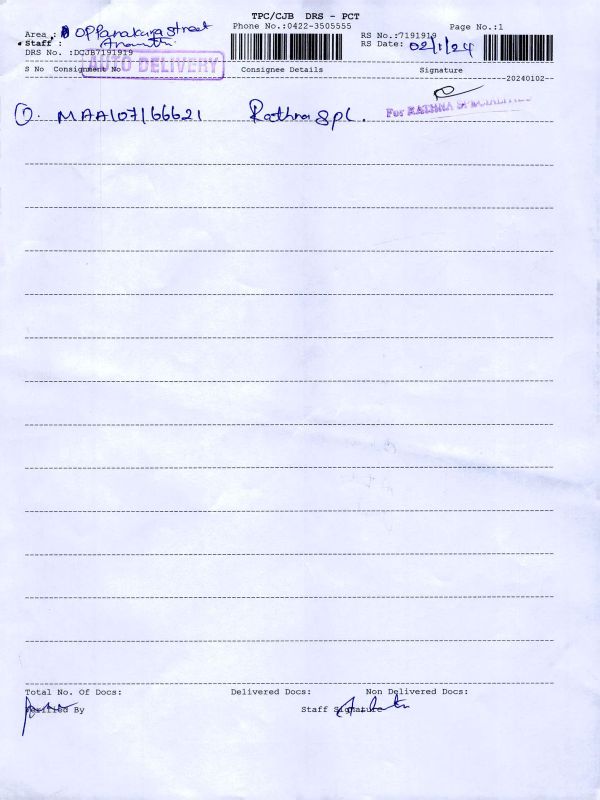 TPC/CJB DRS - PCT
Phone No.:0422-3505555
Page No.:1
Area : Oppanakara street
RS No.:7191919
Staff :
RS Date: 02/1/24
DRS No. :DCJB7191919
AUTO DELIVERY
S No Consignment No Consignee Details Signature
20240102
1. MAA107166621 Rathna Spl.
For RATHNA SPECIALITIES
Total No. Of Docs: Delivered Docs: Non Delivered Docs:
Verified By Staff Signature